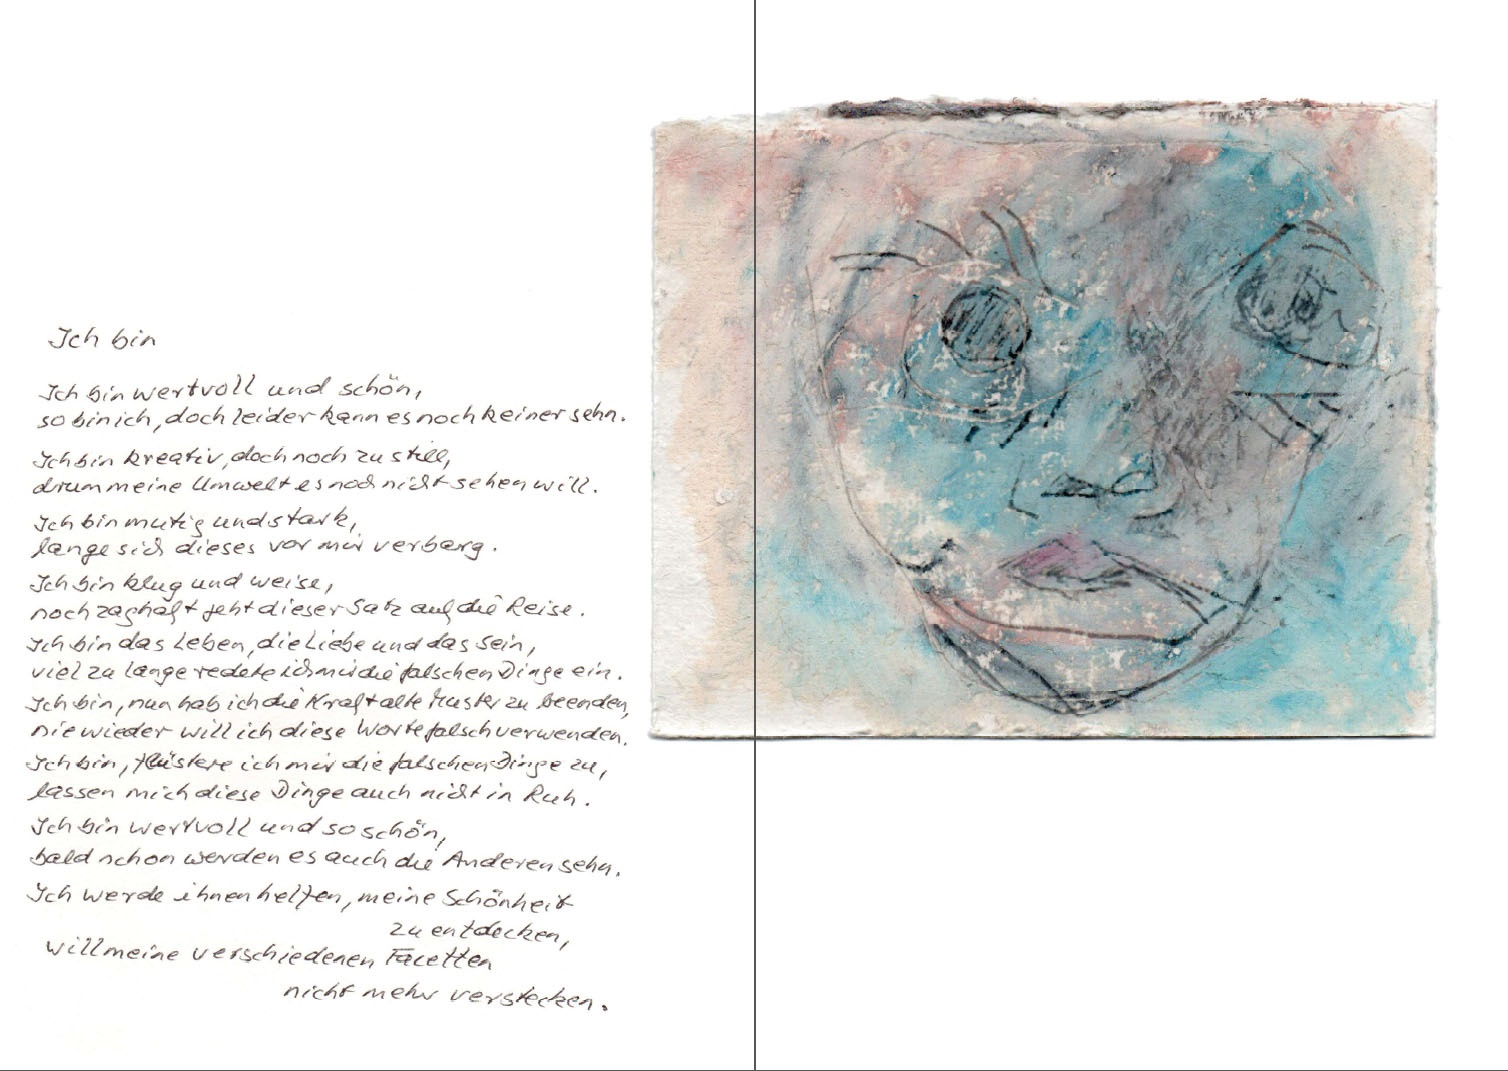 Ich bin
Ich bin wertvoll und schön,
so bin ich, doch leider kann es noch keiner sehn.
Ich bin kreativ, doch noch zu still,
drum meine Umwelt es noch nicht sehen will.
Ich bin mutig und stark,
lange sich dieses vor mir verbarg.
Ich bin klug und weise,
noch zaghaft geht dieser Satz auf die Reise.
Ich bin das Leben, die Liebe und das Sein,
viel zu lange redete ich mir die falschen Dinge ein.
Ich bin, nun hab ich die Kraft alte Muster zu beenden,
nie wieder will ich diese Worte falsch verwenden.
Ich bin, flüstere ich mir die falschen Dinge zu,
lassen mich diese Dinge auch nicht in Ruh.
Ich bin wertvoll und so schön,
bald schon werden es auch die Anderen sehn.
Ich werde ihnen helfen, meine Schönheit
zu entdecken,
will meine verschiedenen Facetten
nicht mehr verstecken.